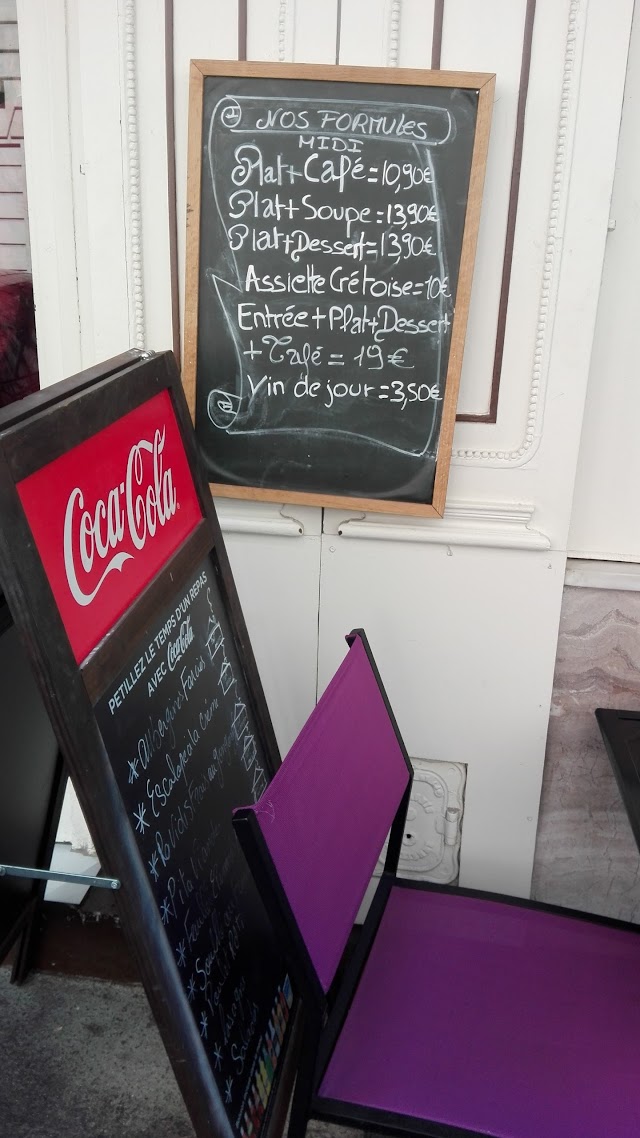 NOS FORMULES
MIDI
Plat+Café=10,90€
Plat+Soupe=13,90€
Plat+Dessert=13,90€
Assiette Crétoise=10€
Entrée+Plat+Dessert
+Café=19€
Vin de jour=3,50€
Coca-Cola
PETILLEZ LE TEMPS D'UN REPAS
AVEC Coca-Cola
* Aubergines Farcies
* Escalope à la crème
* Raviolis Frais
* Pita
*
*
*
*
*